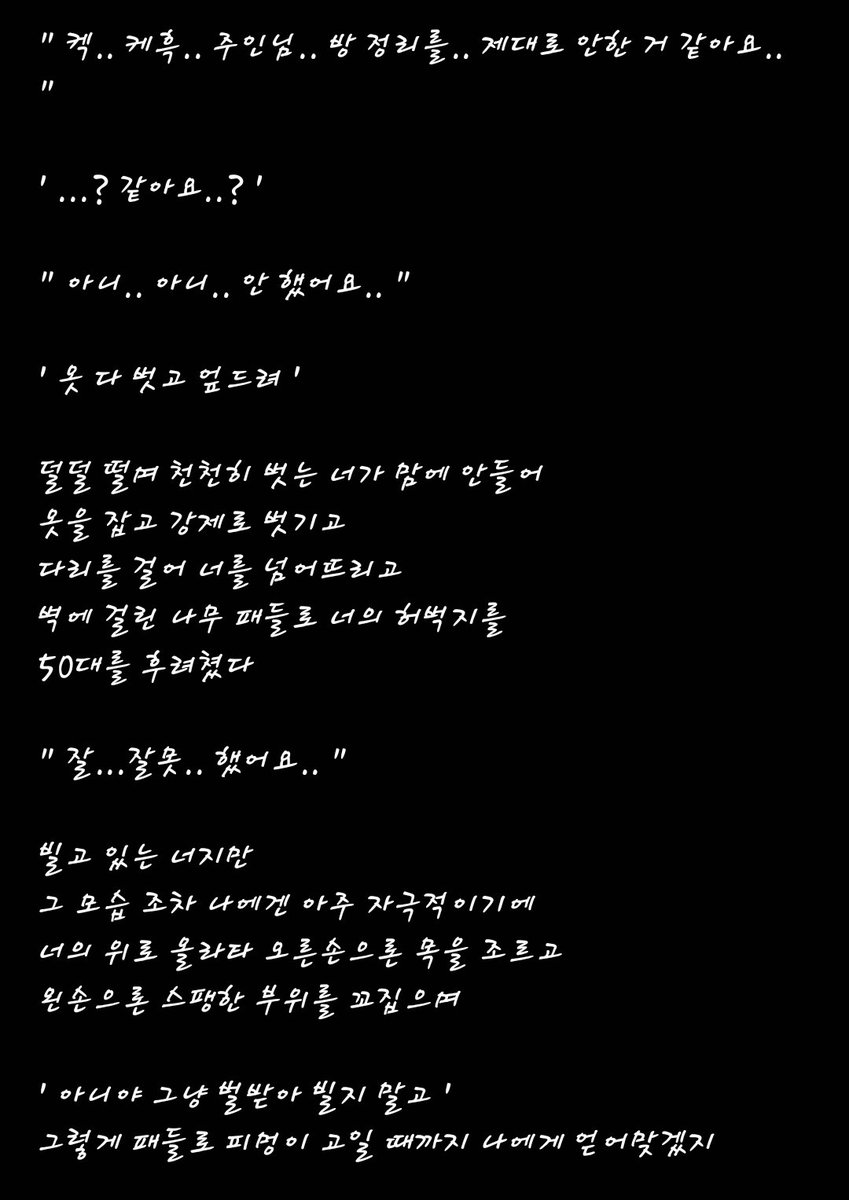 " 켁.. 케흑.. 주인님.. 방 정리를.. 제대로 안한 거 같아요..
"
' ...? 같아요..? '
" 아니.. 아니.. 안 했어요.. "
' 옷 다 벗고 엎드려 '
덜덜 떨며 천천히 벗는 너가 맘에 안들어
옷을 잡고 강제로 벗기고
다리를 걸어 너를 넘어뜨리고
벽에 걸린 나무 패들로 너의 허벅지를
50대를 후려쳤다
" 잘...잘못.. 했어요.. "
빌고 있는 너지만
그 모습 조차 나에겐 아주 자극적이기에
너의 위로 올라타 오른손으론 목을 조르고
왼손으론 스팽한 부위를 꼬집으며
' 아니야 그냥 벌받아 빌지 말고 '
그렇게 패들로 피멍이 고일 때까지 나에게 얻어맞겠지